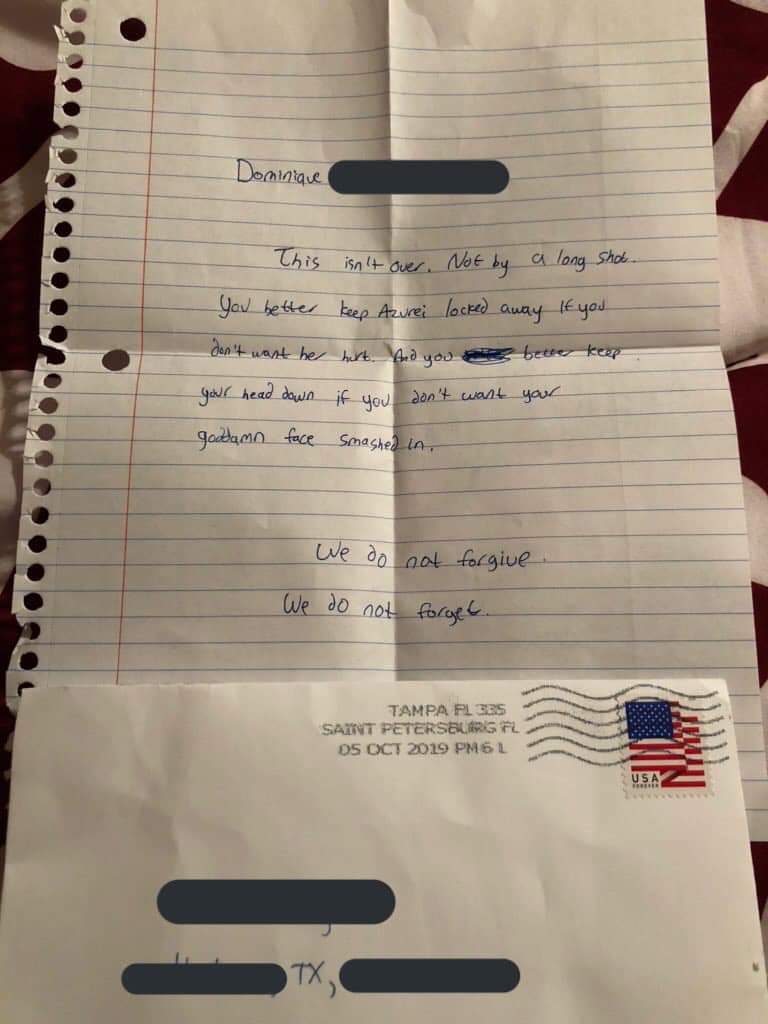 Dominique
This isn't over. Not by a long shot.
You better keep Azurei locked away if you
don't want her hurt. And you better keep
your head down if you don't want your
goddamn face smashed in.
We do not forgive.
We do not forget.
TAMPA FL 335
SAINT PETERSBURG FL
05 OCT 2019 PM 6 L
USA
FOREVER
TX,